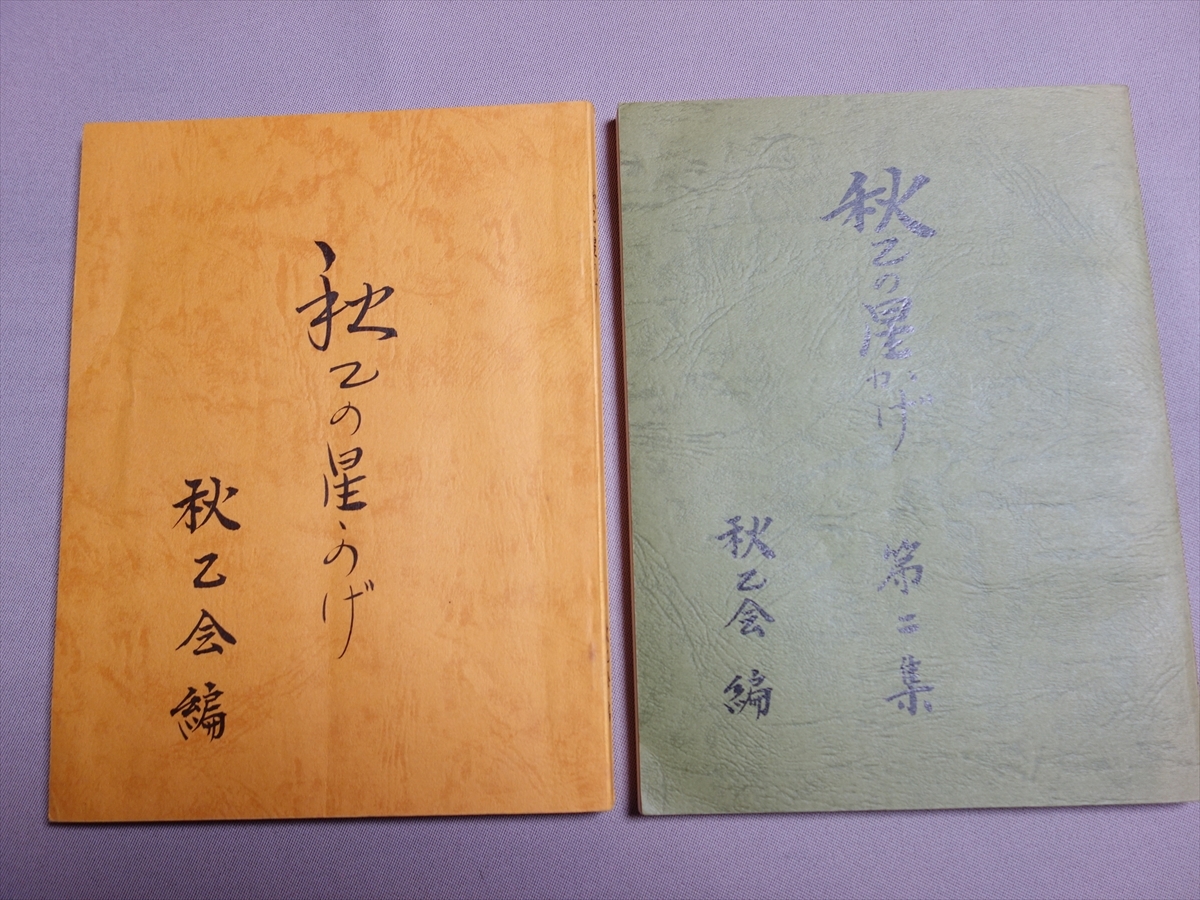 秋乙の星かげ
秋乙会編
秋乙の星かげ
第二集
秋乙会編